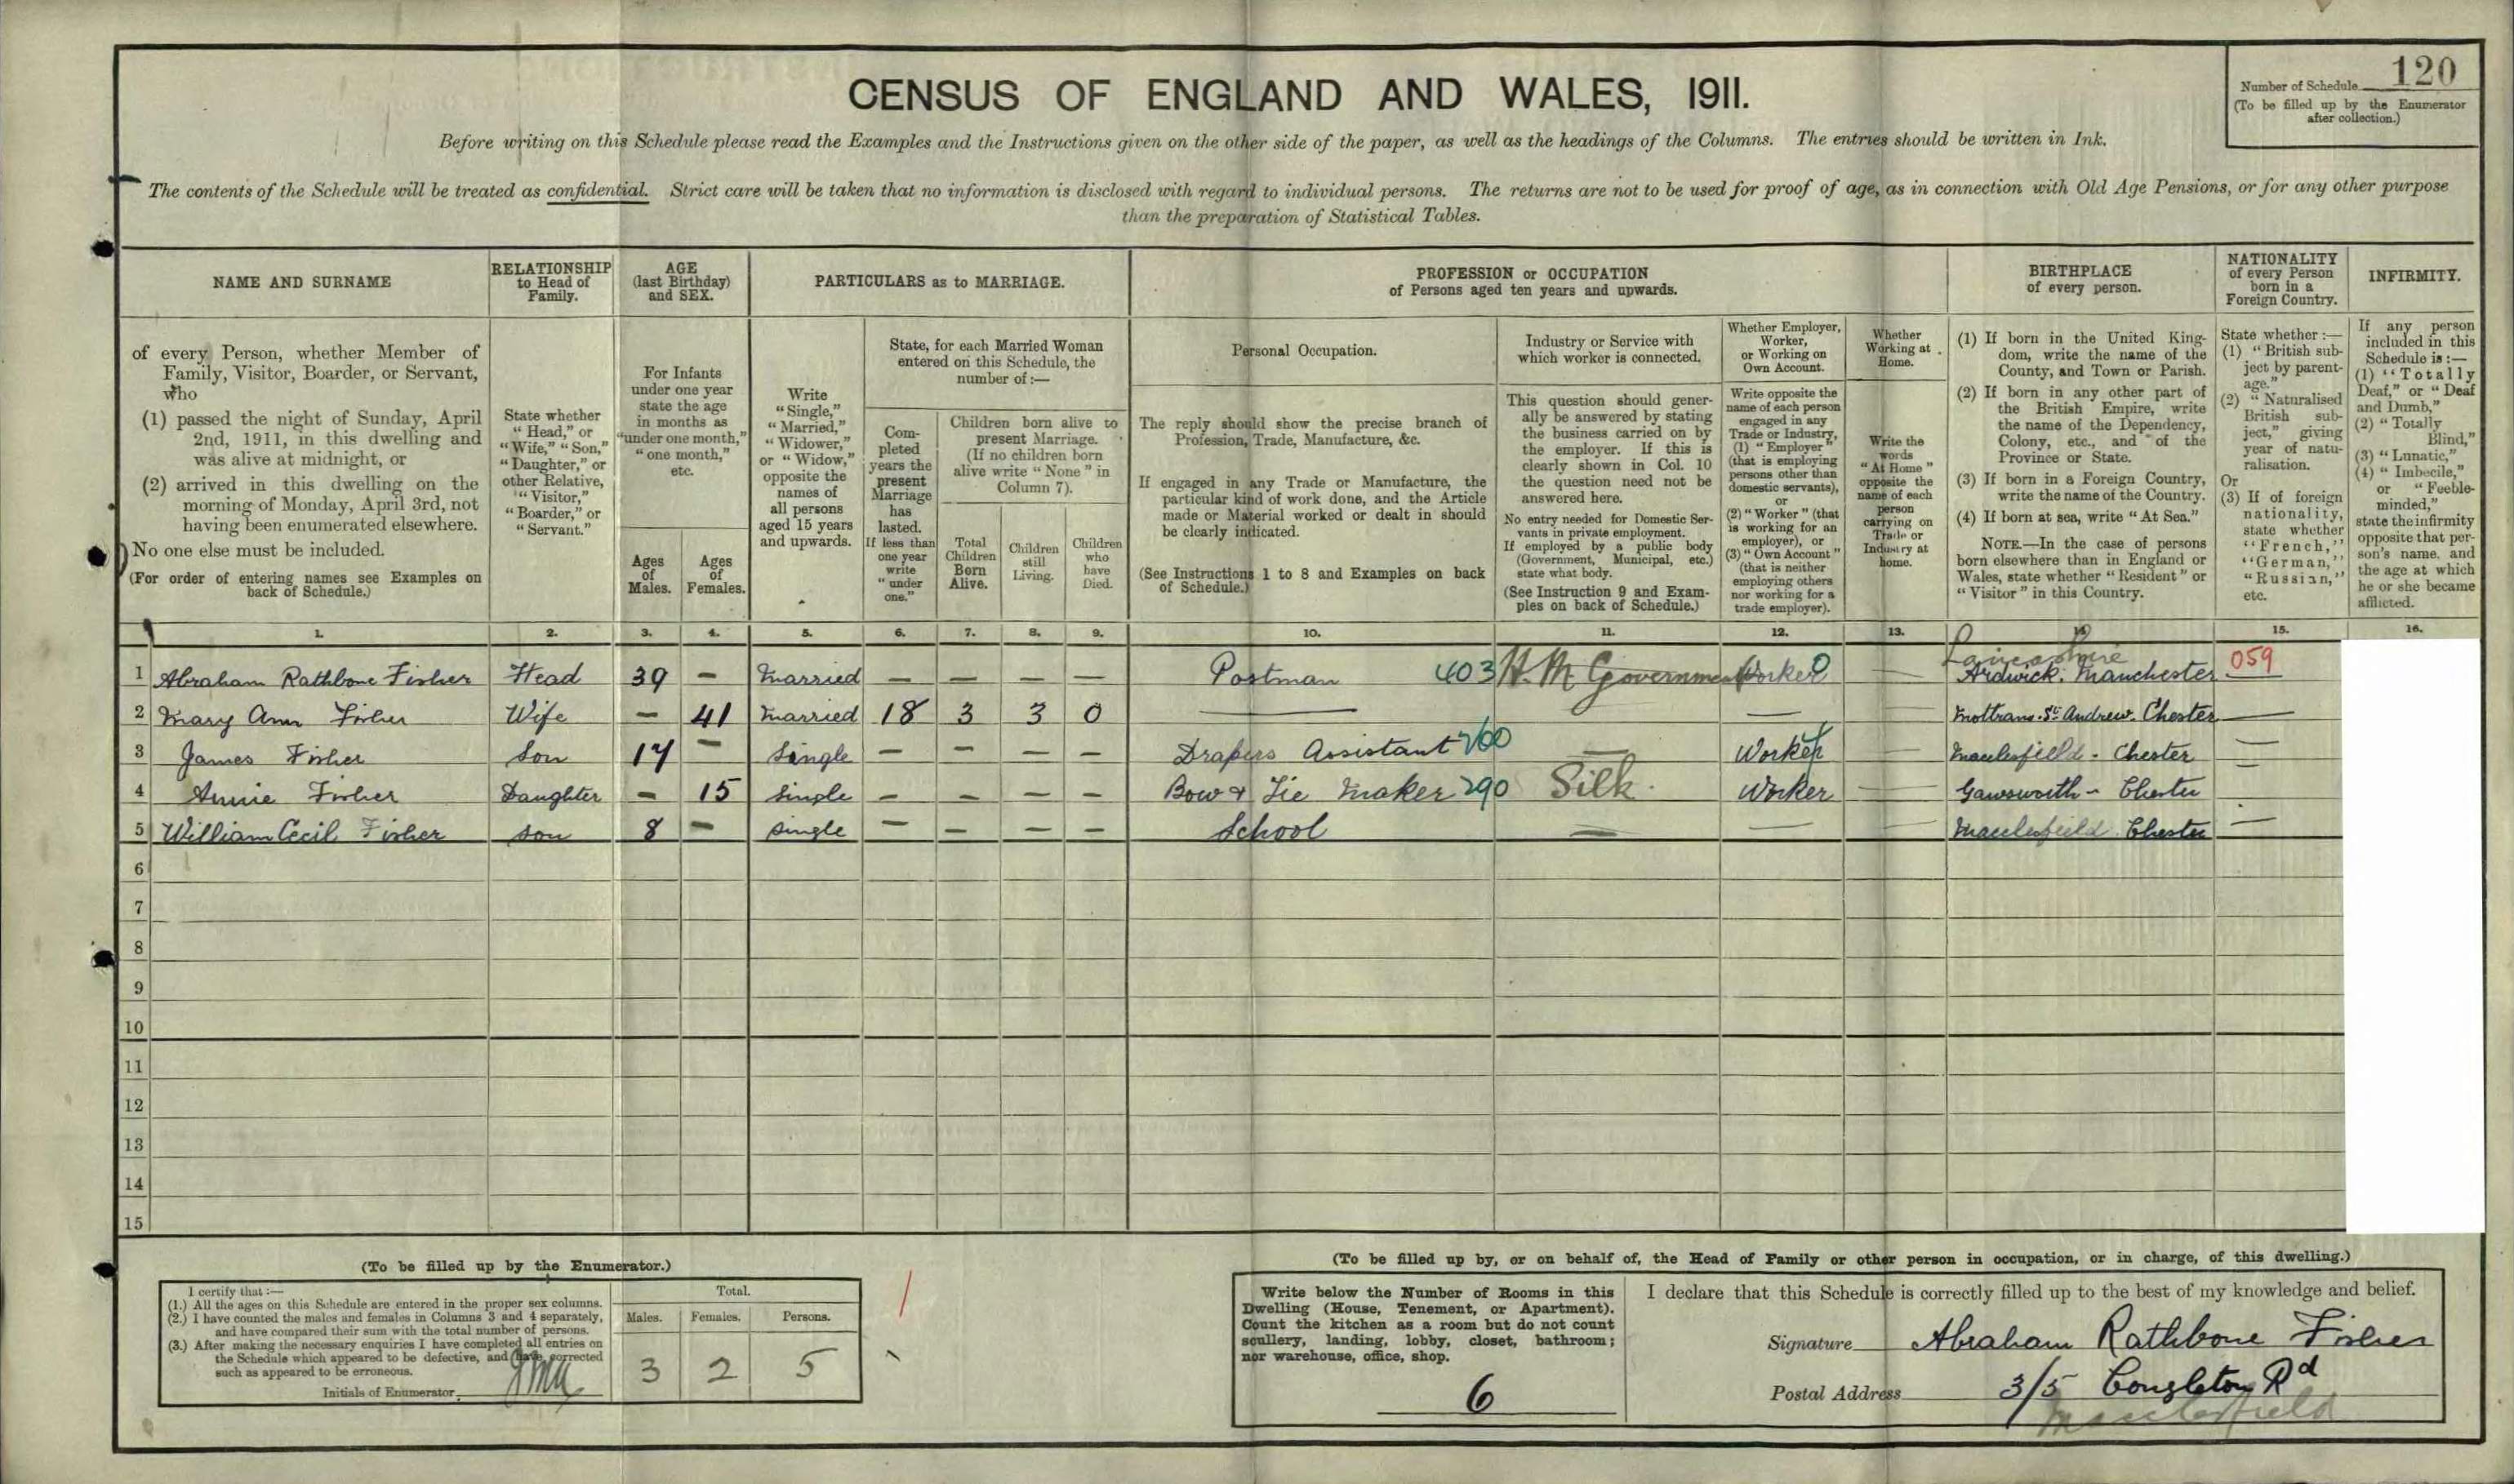 120
Number of Schedule
(To be filled up by the Enumerator
after collection.)
CENSUS OF ENGLAND AND WALES, 1911.
Before writing on this Schedule please read the Examples and the Instructions given on the other side of the paper, as well as the headings of the Columns. The entries should be written in Ink.
The contents of the Schedule will be treated as confidential. Strict care will be taken that no information is disclosed with regard to individual persons. The returns are not to be used for proof of age, as in connection with Old Age Pensions, or for any other purpose
than the preparation of Statistical Tables.
NAME AND SURNAME
RELATIONSHIP
to Head of
Family.
AGE
(last Birthday)
and SEX.
PARTICULARS as to MARRIAGE.
PROFESSION or OCCUPATION
of Persons aged ten years and upwards.
BIRTHPLACE
of every person.
NATIONALITY
of every Person
born in a
Foreign Country.
INFIRMITY.
of every Person, whether Member of
Family, Visitor, Boarder, or Servant,
who
(1) passed the night of Sunday, April
2nd, 1911, in this dwelling and
was alive at midnight, or
(2) arrived in this dwelling on the
morning of Monday, April 3rd, not
having been enumerated elsewhere.
No one else must be included.
(For order of entering names see Examples on
back of Schedule.)
State whether
"Head," or
"Wife," "Son,"
"Daughter," or
other Relative,
"Visitor,"
"Boarder," or
"Servant."
For Infants
under one year
state the age
in months as
"under one month,"
"one month,"
etc.
Ages
of
Males.
Ages
of
Females.
Write
"Single,"
"Married,"
"Widower,"
or "Widow,"
opposite the
names of
all persons
aged 15 years
and upwards.
State, for each Married Woman
entered on this Schedule, the
number of :—
Com-
pleted
years the
present
Marriage
has
lasted.
If less than
one year
write
"under
one."
Children born alive to
present Marriage.
(If no children born
alive write "None" in
Column 7).
Total
Children
Born
Alive.
Children
still
Living.
Children
who
have
Died.
Personal Occupation.
The reply should show the precise branch of
Profession, Trade, Manufacture, &c.
If engaged in any Trade or Manufacture, the
particular kind of work done, and the Article
made or Material worked or dealt in should
be clearly indicated.
(See Instructions 1 to 8 and Examples on back
of Schedule.)
Industry or Service with
which worker is connected.
This question should gener-
ally be answered by stating
the business carried on by
the employer. If this is
clearly shown in Col. 10
the question need not be
answered here.
No entry needed for Domestic Ser-
vants in private employment.
If employed by a public body
(Government, Municipal, etc.)
state what body.
(See Instruction 9 and Exam-
ples on back of Schedule.)
Whether Employer,
Worker,
or Working on
Own Account.
Write opposite the
name of each person
engaged in any
Trade or Industry,
(1) "Employer"
(that is employing
persons other than
domestic servants),
or
(2) "Worker" (that
is working for an
employer), or
(3) "Own Account"
(that is neither
employing others
nor working for a
trade employer).
Whether
Working at
Home.
Write the
words
"At Home"
opposite the
name of each
person
carrying on
Trade or
Industry at
home.
(1) If born in the United King-
dom, write the name of the
County, and Town or Parish.
(2) If born in any other part of
the British Empire, write
the name of the Dependency,
Colony, etc., and of the
Province or State.
(3) If born in a Foreign Country,
write the name of the Country.
(4) If born at sea, write "At Sea."
NOTE.—In the case of persons
born elsewhere than in England or
Wales, state whether "Resident" or
"Visitor" in this Country.
State whether :—
(1) "British sub-
ject by parent-
age."
(2) "Naturalised
British sub-
ject," giving
year of natu-
ralisation.
Or
(3) If of foreign
nationality,
state whether
"French,"
"German,"
"Russian,"
etc.
If any person
included in this
Schedule is :—
(1) "Totally
Deaf," or "Deaf
and Dumb,"
(2) "Totally
Blind,"
(3) "Lunatic,"
(4) "Imbecile,"
or "Feeble-
minded,"
state the infirmity
opposite that per-
son's name, and
the age at which
he or she became
afflicted.
1. 2. 3. 4. 5. 6. 7. 8. 9. 10. 11. 12. 13. 14 15. 16.
Lancashire
1 Abraham Rathbone Fisher Head 39 – Married — — — — Postman 403 H.M Government Worker — Ardwick. Manchester 059
2 Mary Ann Fisher Wife – 41 Married 18 3 3 0 — — — Mottram. St Andrew. Chester —
3 James Fisher Son 17 – Single – – — – Drapers Assistant 260 — Worker — Macclesfield - Chester —
4 Annie Fisher Daughter – 15 Single – – — – Bow & Tie Maker 290 Silk. Worker — Gawsworth - Chester —
5 William Cecil Fisher Son 8 – Single – – — – School — — — Macclesfield. Chester —
6
7
8
9
10
11
12
13
14
15
(To be filled up by the Enumerator.)
I certify that :—
(1.) All the ages on this Schedule are entered in the proper sex columns.
(2.) I have counted the males and females in Columns 3 and 4 separately,
and have compared their sum with the total number of persons.
(3.) After making the necessary enquiries I have completed all entries on
the Schedule which appeared to be defective, and have corrected
such as appeared to be erroneous.
Initials of Enumerator
Total.
Males. Females. Persons.
3 2 5
(To be filled up by, or on behalf of, the Head of Family or other person in occupation, or in charge, of this dwelling.)
Write below the Number of Rooms in this
Dwelling (House, Tenement, or Apartment).
Count the kitchen as a room but do not count
scullery, landing, lobby, closet, bathroom;
nor warehouse, office, shop.
6
I declare that this Schedule is correctly filled up to the best of my knowledge and belief.
Signature Abraham Rathbone Fisher
Postal Address 315 Congleton Rd
Macclesfield